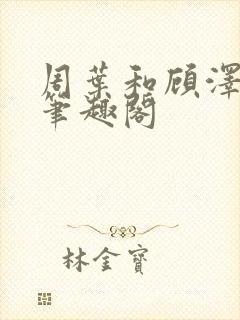 周葉和顾澤
筆趣閣
林金寶